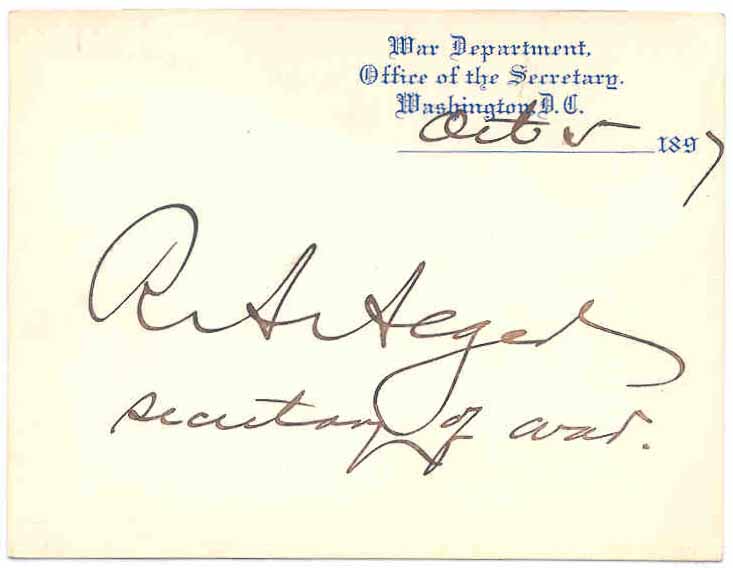 War Department,
Office of the Secretary.
Washington, D.C.
Oct 5 1897
R. A. Alger
Secretary of War.